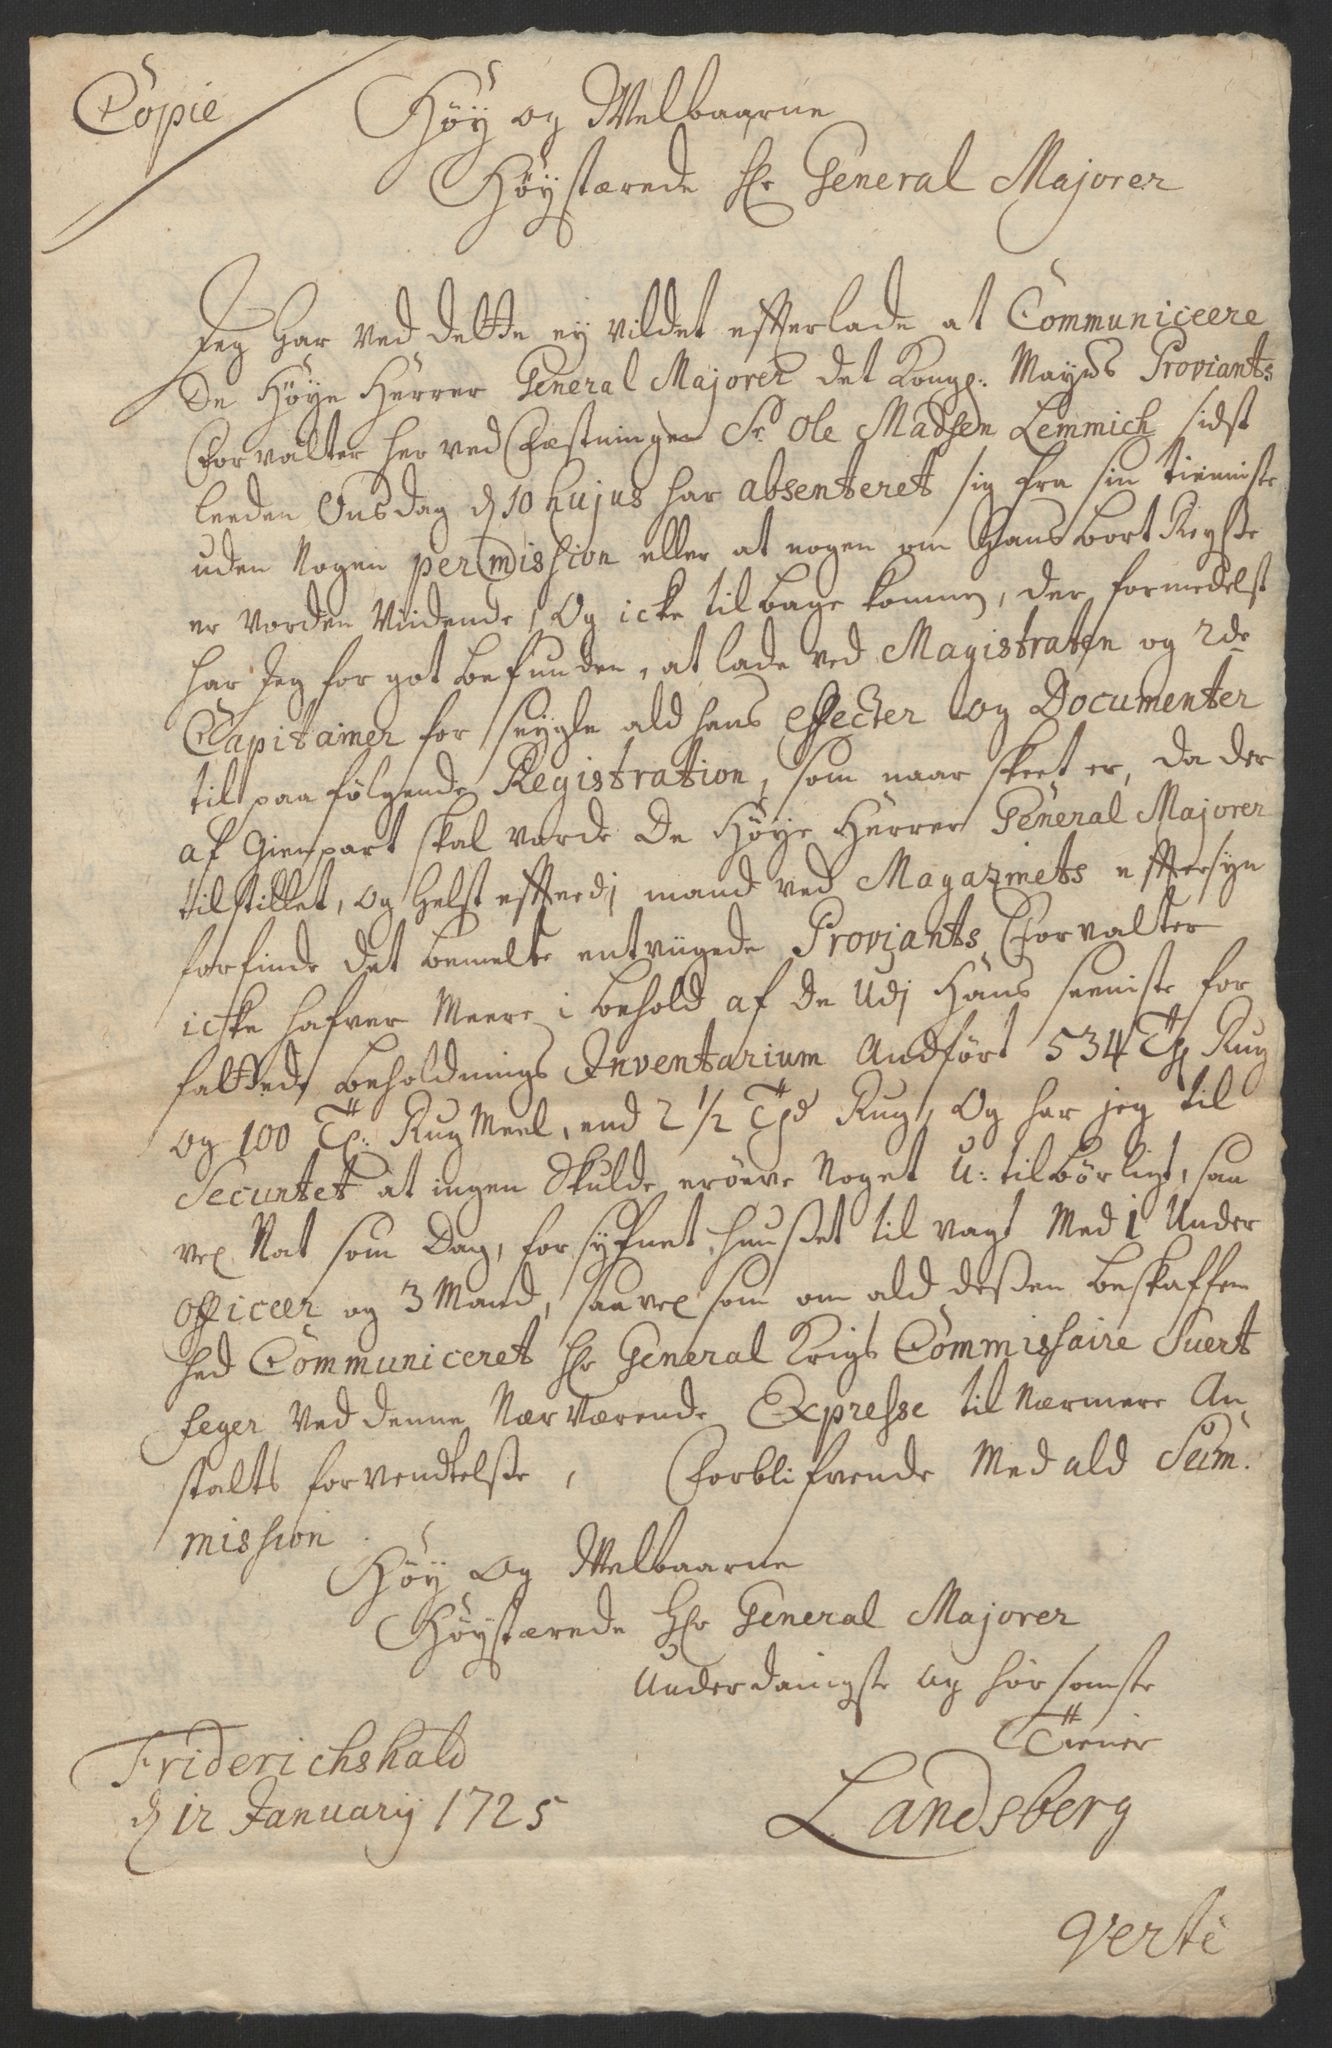 Copie
Høy og Welbaarne
Høystærede Hr General Majorer
Jeg har ved dette ey vildet efterlade at Communiceere
De Høye Herrer General Majorer det Kongl: Mayts Proviants
Forvalter her ved Fæstningen Sr Ole Madsen Lemmich sidst
leeden Onsdag d 10 hujus har absenteret sig fra sin tienniste
uden Nogen permission eller at nogen om Hans bort Reyße
er vorden Viidende, Og icke tilbage kommen, der formedelst
har Jeg for got befunden, at lade ved Magistraten og 2de
Capitainer for seygle ald hans effecter og Documenter
til paafølgende Registration, som naar skeet er, da der
af Gienpart skal vorde De Høye Herrer General Majorer
tilstillet, og helst efterdj mand ved Magazinets eftersyn
forfinde det bemelte entviigede Provjants Forvalter
icke hafver Meere i behold af de Udj Hans seeniste for
fattede beholdnings Inventarium Andført 534 Tdr Rug
og 100 Tr: Rug Meel, end 2 1/2 Td Rug, Og har jeg til
Securitet at ingen Skulde erøve Noget U: tilbørligt, saa
vel Nat som Dag, forsyfnet huußet til vagt Med 1 Under
officeer og 3 Mand, saavel som om ald deßen beskaffen
hed Communiceret Hr General Krigs Commissaire Suert
feger Ved denne Nærværende Expresse til Nærmere An
stalts forvendtelße, Forblifvende Med ald Sum.
mission
Høy Og Welbaarne
Høystærede Hr General Majorer
Underdanigste og hørsomste
Tiener
Friderichshald
d 12 January 1725
Landsberg
Verte